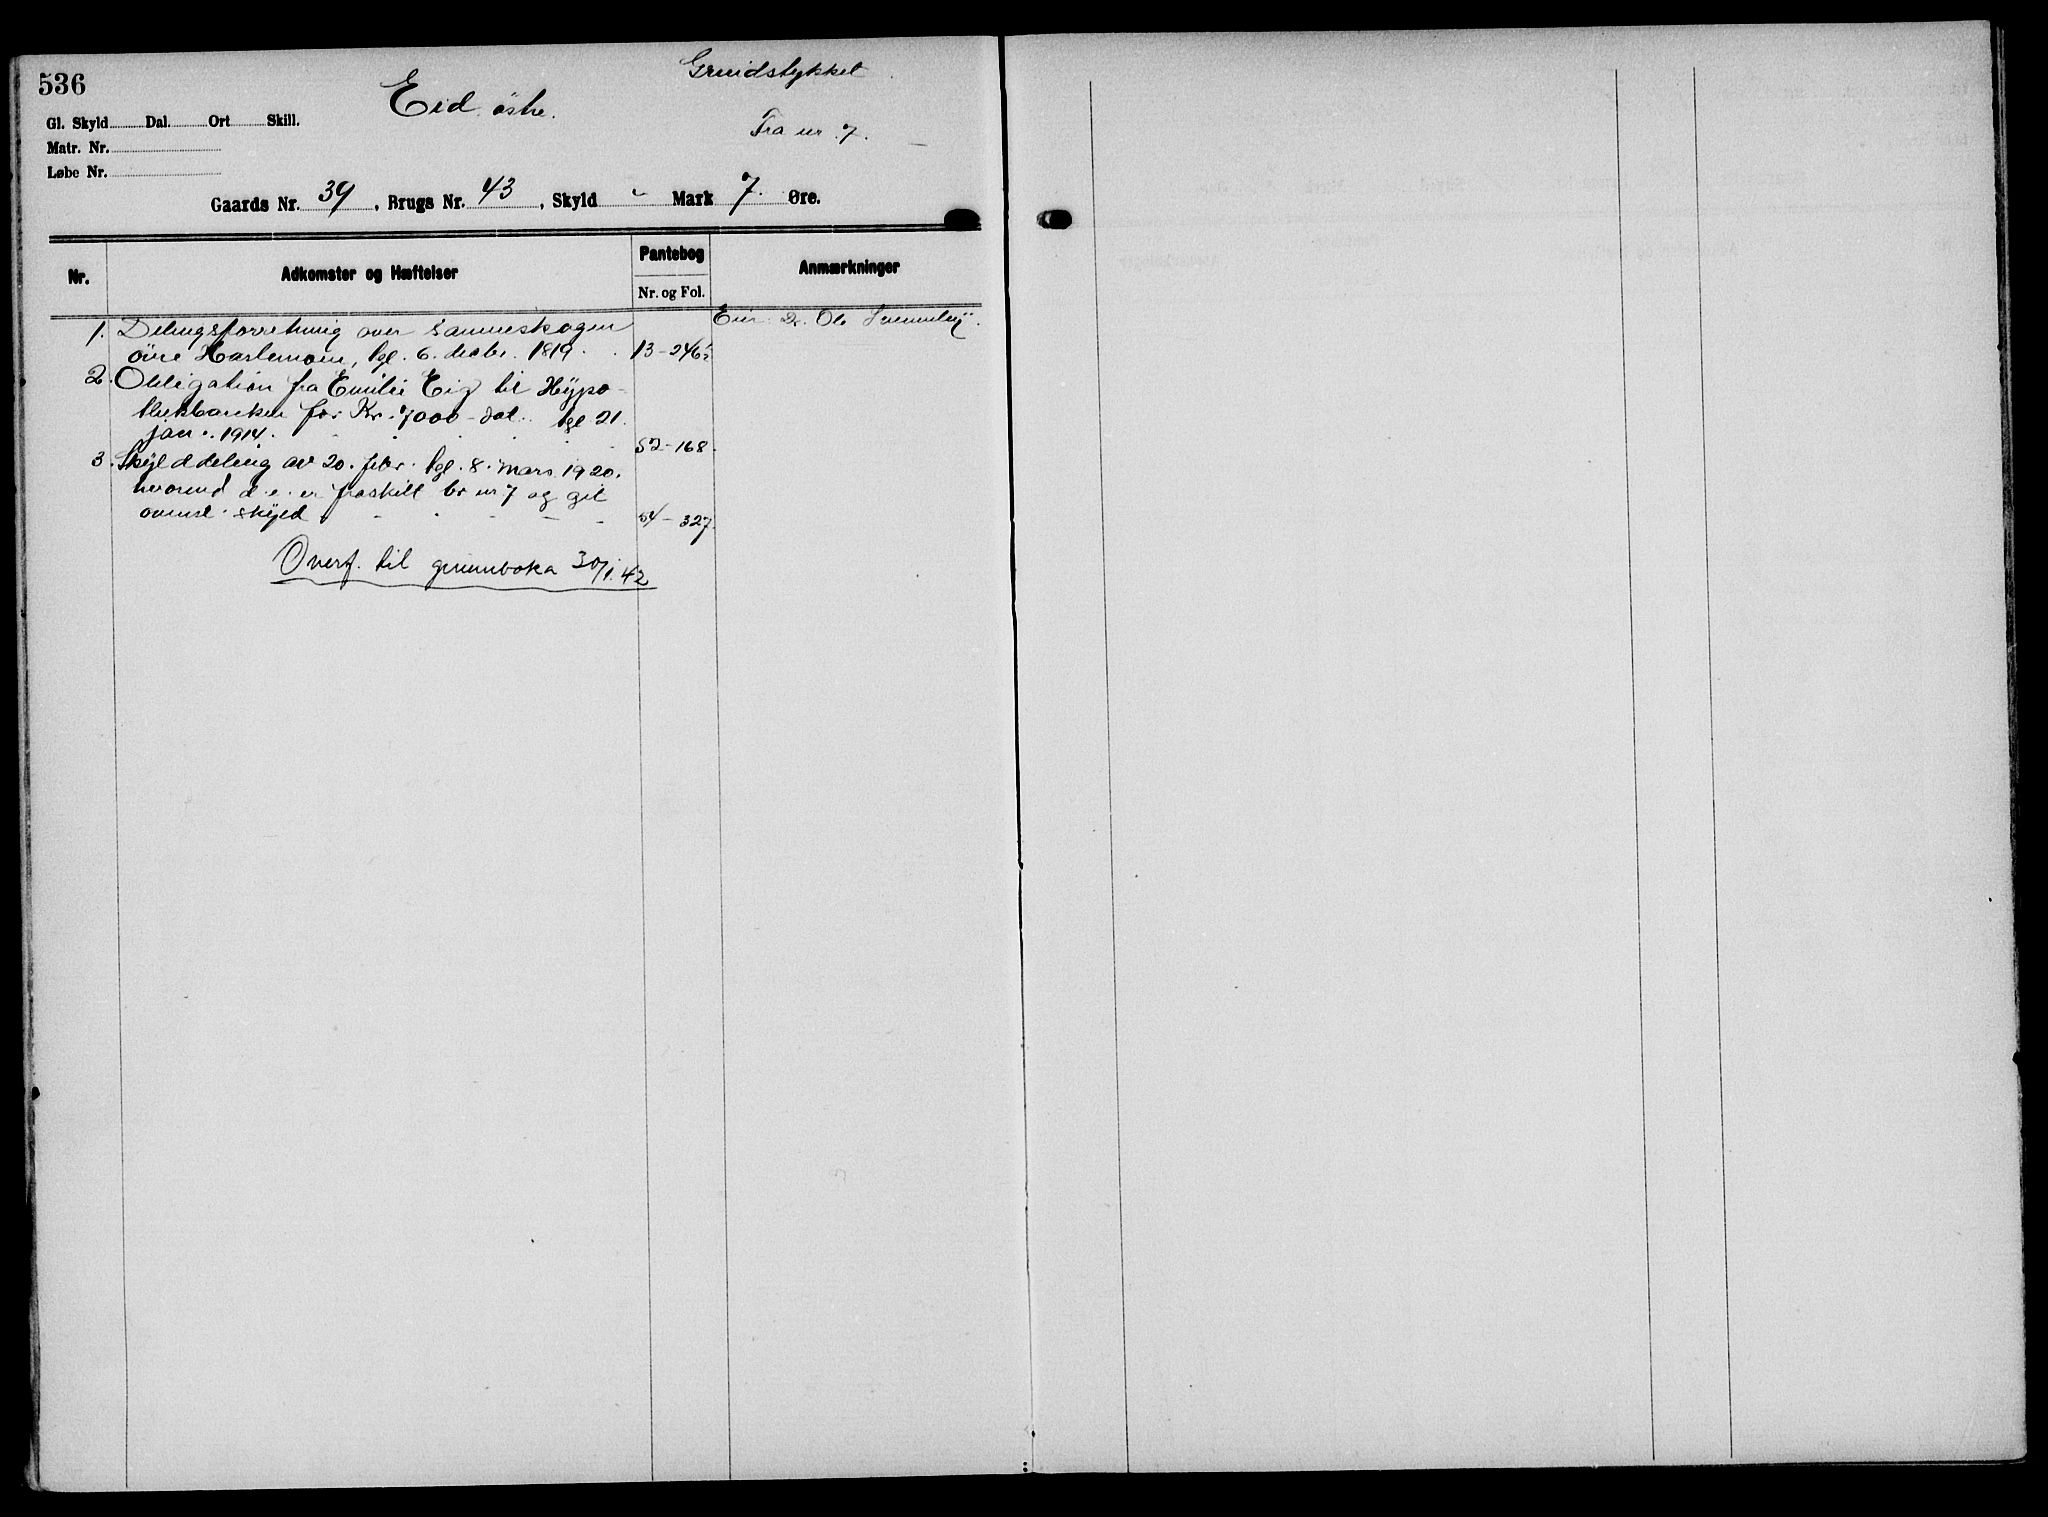 536
Grundstykket
Eid østre.
Gl. Skyld Dal. Ort Skill.
Fra nr 7.
Matr. Nr.
Løbe Nr.
Gaards Nr. 39, Brugs Nr. 43, Skyld - Mark 7. Øre.
Nr. Adkomster og Hæftelser Pantebog Anmærkninger
Nr. og Fol.
1. Delingsforretning over Sanneskogen Eier Dr. Ole
øvre Haslemoen, tgl. 6. decbr. 1819. 13-246
2. Obligation fra Emilie Eig til Hypo-
thekbanken for Kr. 7000 - dat. tgl 21.
jan. 1914. 52-168.
3. Skylddeling av 20. febr. tgl. 8. mars 1920.
hvorved d. e. er fraskilt br nr 7 og git
ovenst. skyld 54-327.
Overf. til grunnboka 30/1.42